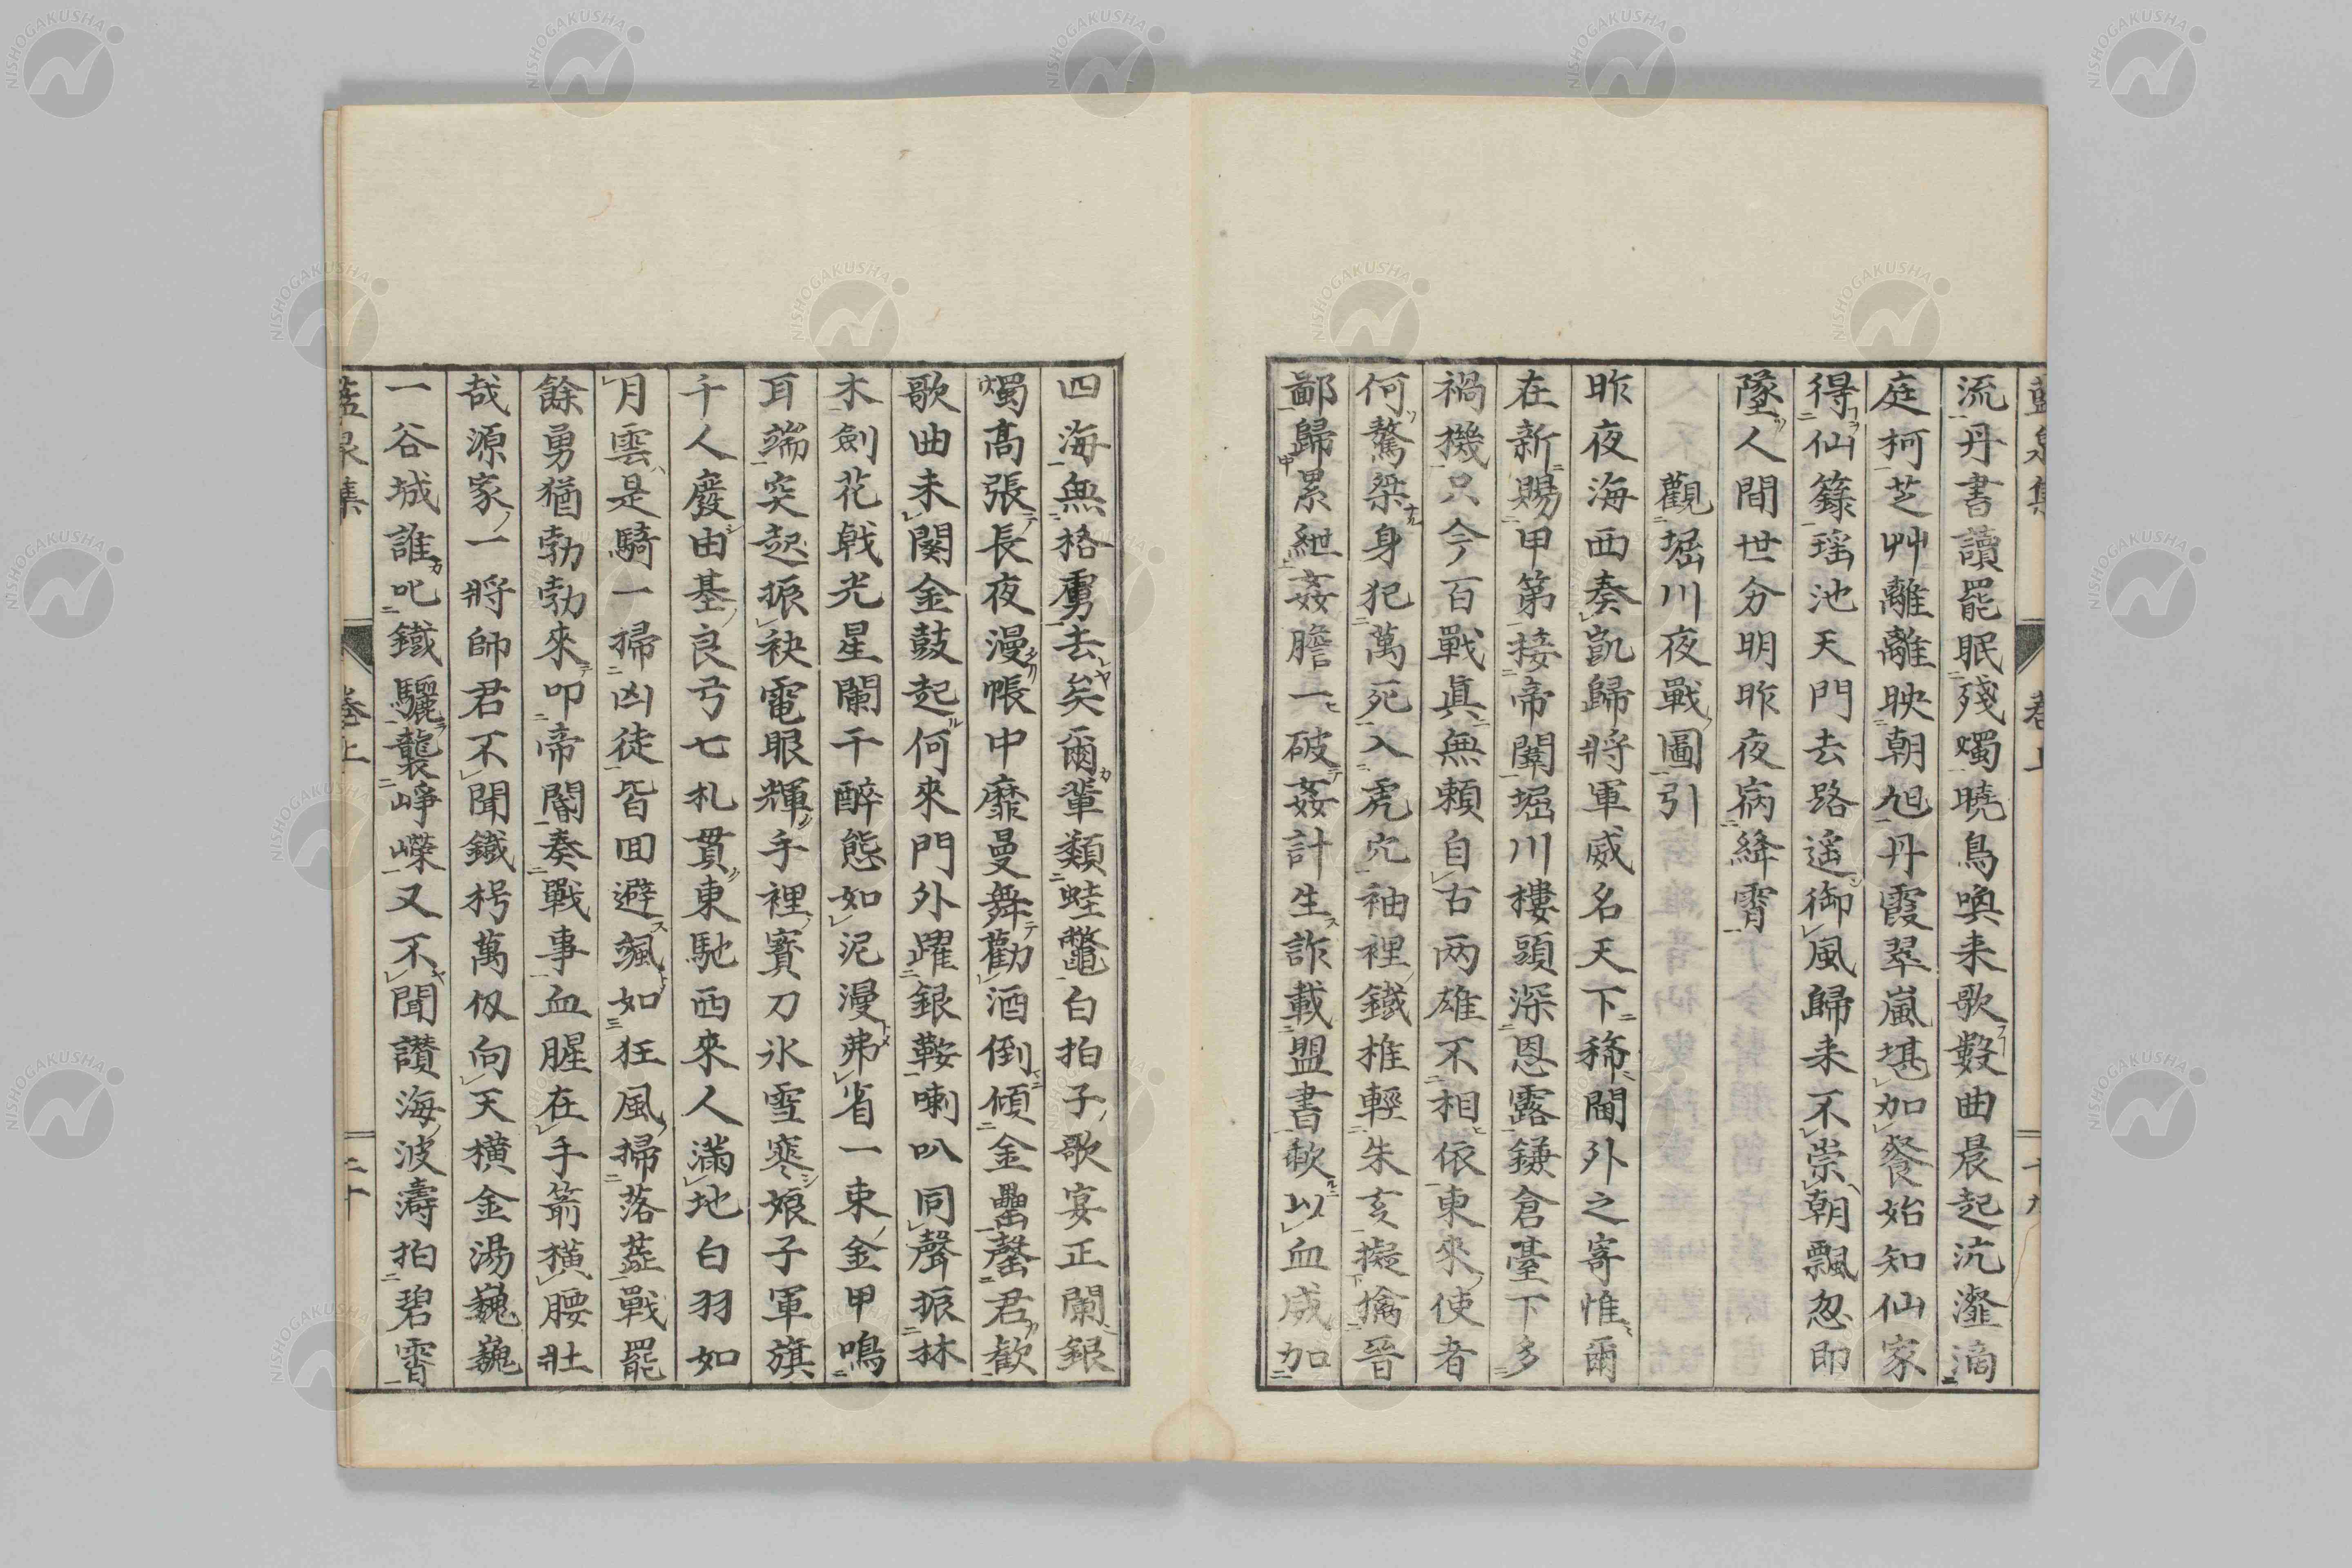 流丹書讀罷眠殘燭曉鳥喚来歌數曲晨起沆瀣滴
庭柯芝艸離離映朝旭丹霞翠嵐堪加餐始知仙家
得仙籙瑶池天門去路遥御風歸来不崇朝飄忽即
墜人間世分明昨夜病絳霄
觀堀川夜戰圖引
昨夜海西奏凱歸將軍威名天下稀閫外之寄惟爾
在新賜甲第接帝闈堀川樓頭深恩露鎌倉臺下多
禍機只今百戰真無頼自古两雄不相依東來使者
何驁桀身犯萬死入虎穴袖裡鐵椎輕朱亥擬擒晉
鄙歸累紲姦膽一破姦計生詐載盟書歃以血威加
四海無格虜去矣爾輩類蛙黽白拍子歌宴正闌銀
燭高張長夜漫帳中靡曼舞勸酒倒傾金罍罄君歡
歌曲未闋金鼓起何來門外躍銀鞍喇叭同聲振林
木劍花戟光星闌干醉態如泥漫弗省一束金甲鳴
耳端突起振袂電眼輝手裡寳刀氷雪寒娘子軍旗
千人廢由基良弓七札貫東馳西來人滿地白羽如
月雲是騎一掃凶徒皆回避颯如狂風掃落葉戰罷
餘勇猶勃勃來叩帝閽奏戰事血腥在手箭横腰壯
哉源家一將師君不聞鐵枴萬仭向天横金湯巍巍
一谷城誰叱鐵驪襲崢嶸又不聞讃海波濤拍碧霄
藍泉集 卷上 二十